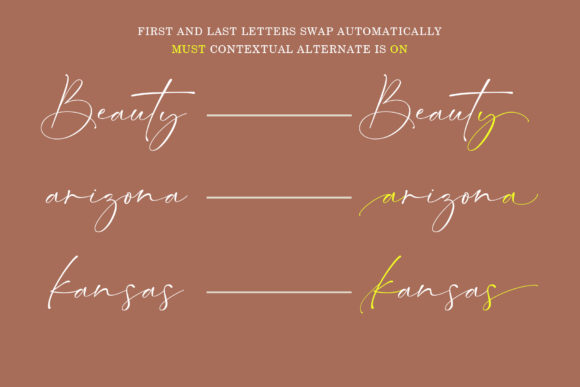 FIRST AND LAST LETTERS SWAP AUTOMATICALLY
MUST CONTEXTUAL ALTERNATE IS ON
Beauty Beauty
arizona arizona
kansas kansas